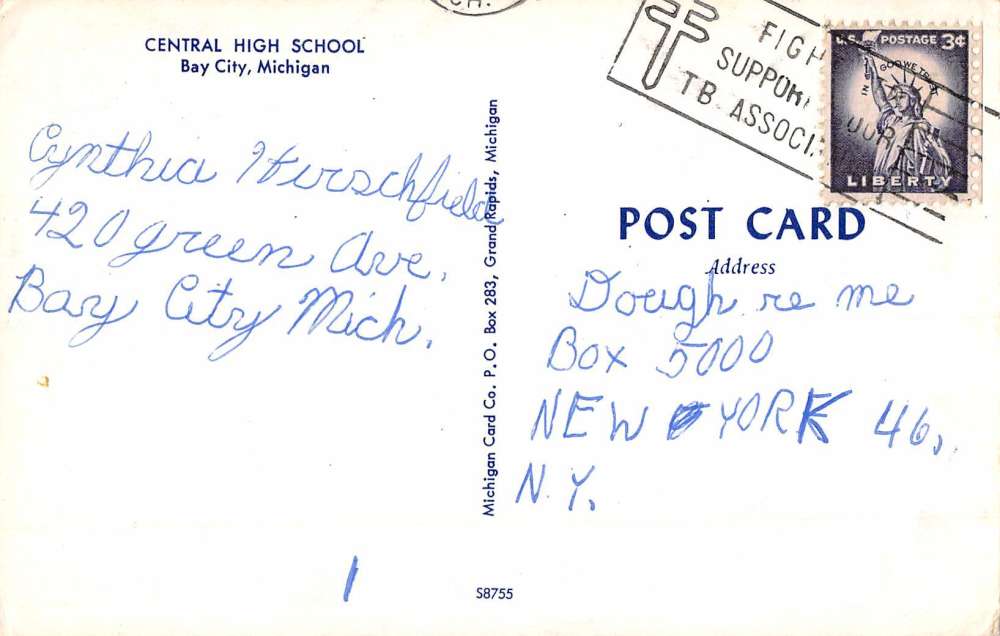 CH.
CENTRAL HIGH SCHOOL
Bay City, Michigan
FIGH
SUPPORT OUR
TB ASSOCI
U.S. POSTAGE 3¢
IN GOD WE TRUST
LIBERTY
Cynthia Hirschfield
420 green Ave.
Bay City Mich.
1
Michigan Card Co. P. O. Box 283, Grand Rapids, Michigan
S8755
POST CARD
Address
Dough re me
Box 5000
NEW YORK 46,
N.Y.